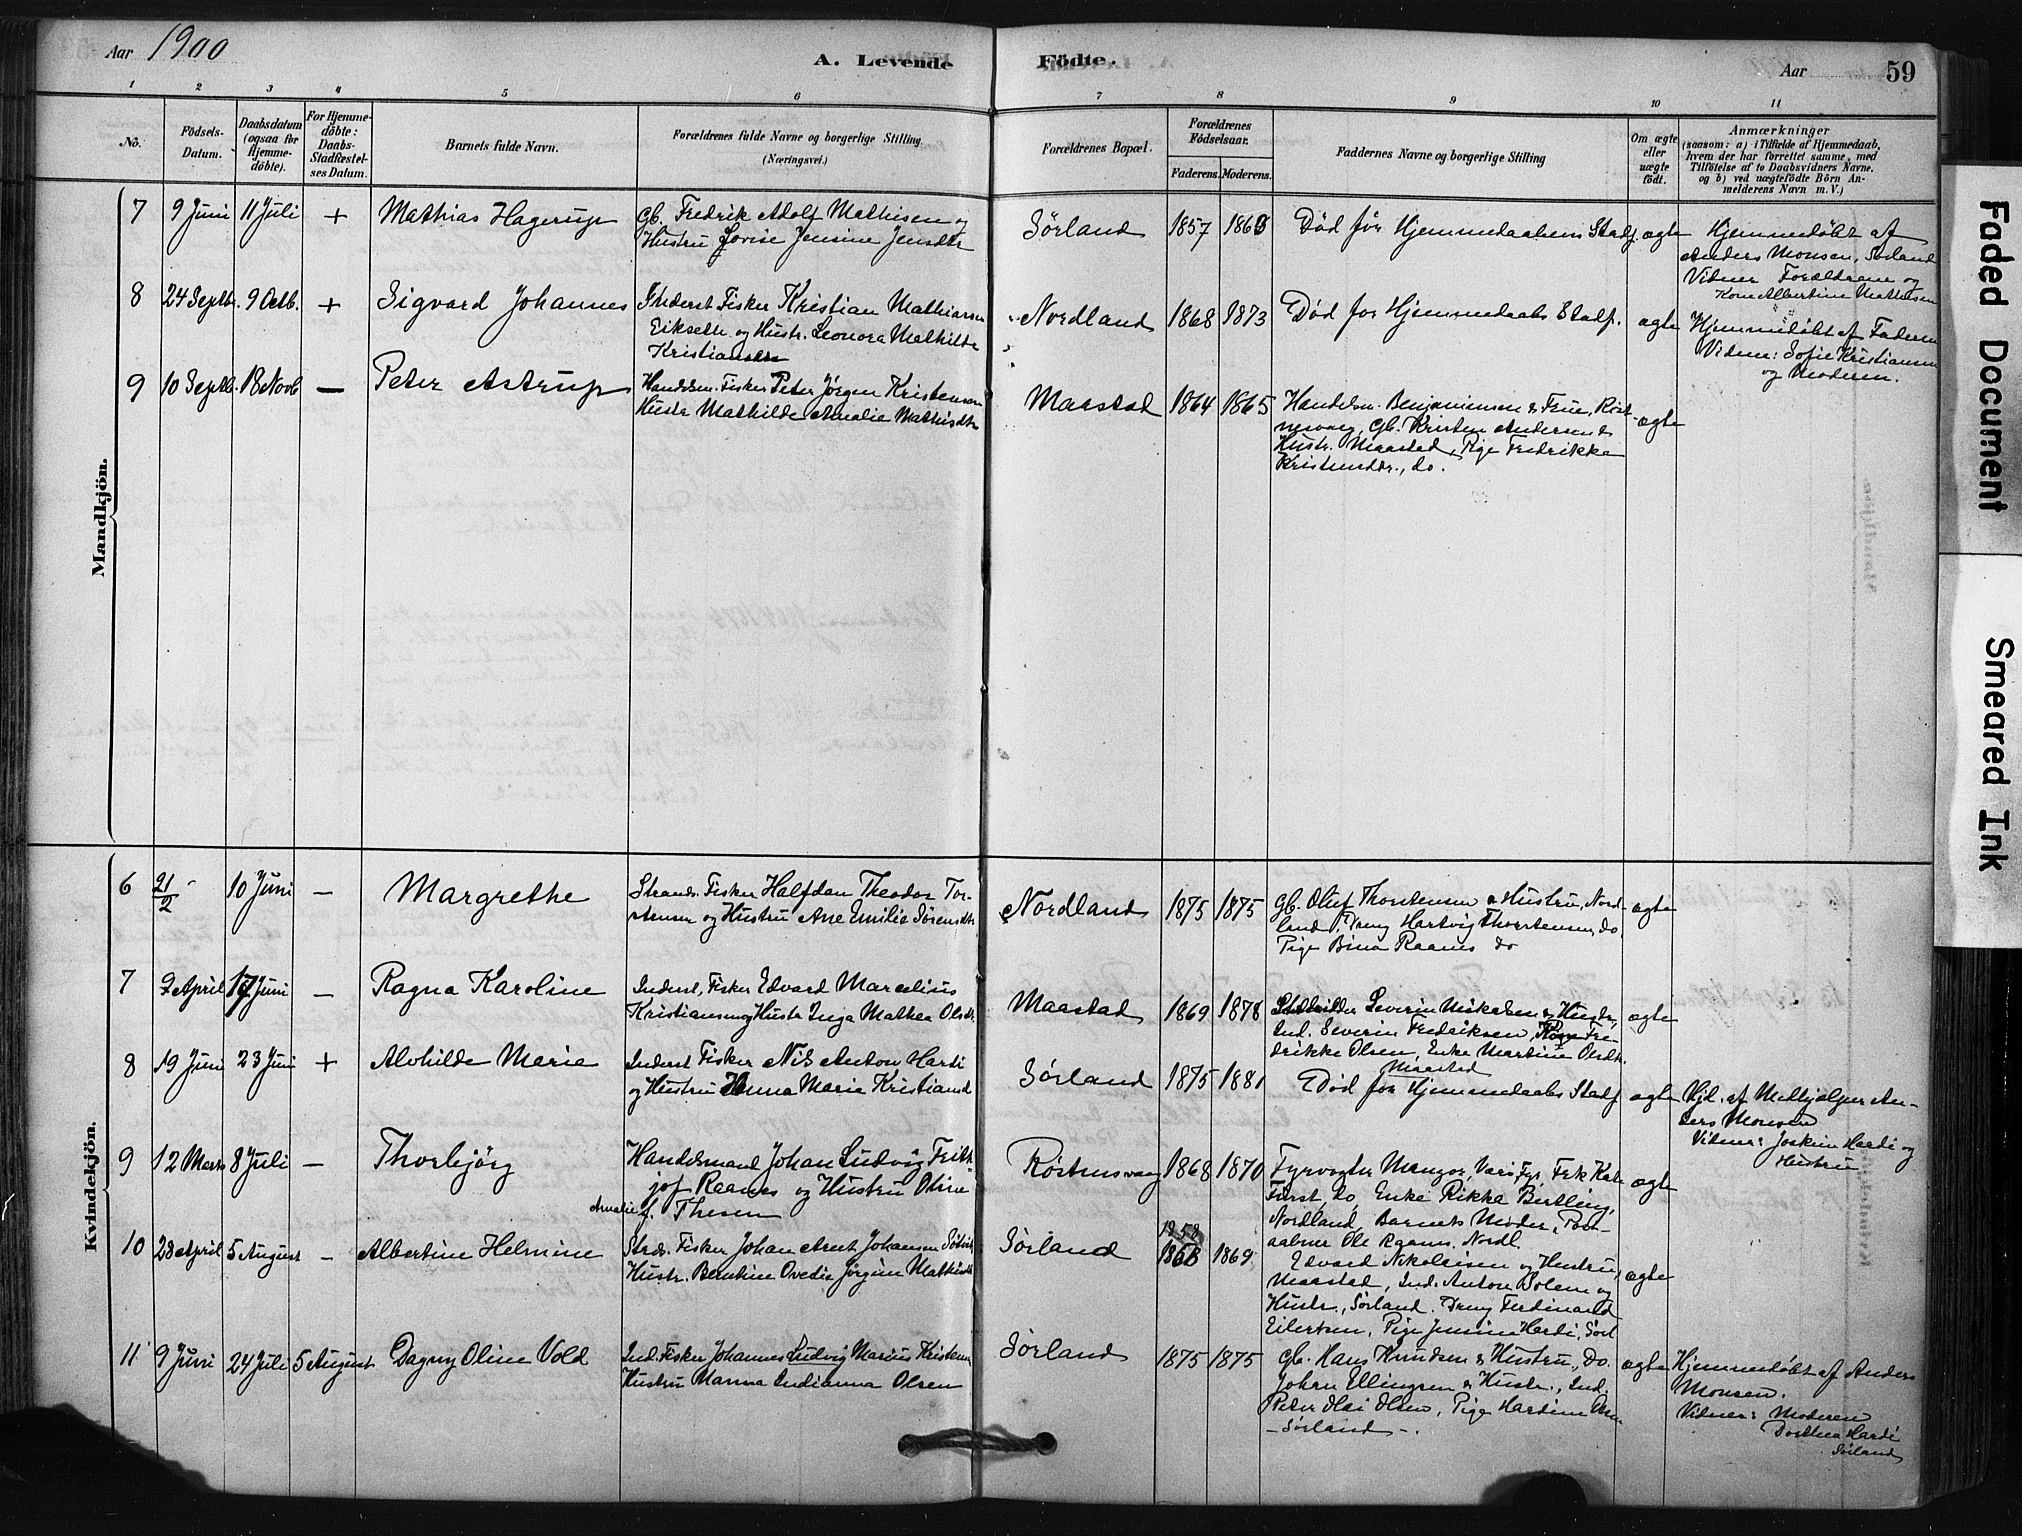 Aar 1900
A. Levende Födte.
Aar 59
1 2 3 4 5 6 7 8 9 10 11
No.
Födsels-Datum.
Daabsdatum (ogsaa for Hjemme-döbte).
For Hjemme-döbte: Daabs-Stadfæstel-ses Datum.
Barnets fulde Navn.
Forældrenes fulde Navne og borgerlige Stilling
(Næringsvei.)
Forældrenes Bopæl.
Forældrenes Födselsaar.
Faderens. Moderens.
Faddernes Navne og borgerlige Stilling
Om ægte eller uægte födt.
Anmærkninger
(saasom: a) i Tilfælde af Hjemmedaab,
hvem der har forrettet samme, med
Tilföielse af to Daabsvidners Navne.
og b) ved uægtefödte Börn An-
melderens Navn m. V.)
Mandkjön.
7 9 Juni 11 Juli + Mathias Hagerup
Gb. Fredrik Adolf Mathisen og
Hustru Lovise Jensine Jensdtr
Sörland 1857 1868
Död för Hjemmedaabens Stadf. ægte
Hjemmedöbt af
Anders Monsen, Sörland
Vidner Forældrene og
Kone Albertine Mathisen
8 24 Septb. 9 Octb. + Sigvard Johannes
Inderst Fisker Kristian Mathiassen
Eiksette og Hustr. Leonora Mathilde
Kristiansdtr
Nordland 1868 1873
Död for Hjemmedaabs Stadf. ægte
Hjemmedöbt af Faderen
Vidner: Sofie Kristiansen
og Moderen.
9 10 Septb. 18 Novb — Peter Astrup
Handelsm. Fisker Peter Jörgen Kristensen
Hustr Mathilde Amalie Mathisdtr
Maastad 1864 1865
Handelsm. Benjaminsen & Frue, Röst-
nesvaag, Gb. Kristen Andersen &
Hustr. Maastad, Pige Fredrikke
Kristensdtr., do.
ægte
Kvindekjön.
6 21/2 10 Juni — Margrethe
Strands. Fisker Halfdan Theodor Tor-
stensen og Hustru Ane Emilie Sörensdtr
Nordland 1875 1875
Gb. Oluf Thorstensen & Hustru, Nord-
land, Dreng Hartvig Thorstensen, do.
Pige Bina Raanes do
ægte
7 2 April 17 Juni — Ragna Karoline
Inderst, Fisker Edvard Marcelius
Kristiansen og Hustr Inga Mathea Olsdtr
Maastad 1869 1878
Severin Mikalsen & Hustr,
Ind. Severin Fredriksen, Kone Fre-
drikke Olsen, Enke Martine Olsdtr.
Maastad
ægte
8 19 Juni 23 Juni + Alvhilde Marie
Inderst Fisker Nils Anton Hardi
og Hustru Hanna Marie Kristiansd
Sörland 1875 1881
Död for Hjemmedaabs Stadf ægte
Hjd. af Medhjælper An-
ders Monsen
Vidner: Joakim Hardi og
Hustru
9 12 Marts 8 Juli — Thorbjörg
Handelsmand Johan Ludvig Frith-
jof Raanes og Hustru Olsine
Amalie f. Thesen
Röstnesvaag 1868 1870
Fyrvogter Mangor, Værö Fyr, Frk Kate
Först, do, Enke Rikka Bertling,
Nordland, Barnets Moder, Post-
aabner Ole Raanes, Nordl.
ægte
10 28 April 5 August — Albertine Helmine
Strds. Fisker Johan Arnt Johansen
Hustr. Benthine Ovedie Jörgine Mathisdtr
Sörland 1858 1869
Edvard Nikolaisen og Hustru,
Maastad, Ind. Anton Bolem og
Hustr., Sörland. Dreng Ferdinand
Eilertsen, Pige Jensine Hardi, Sörl
ægte
11 9 Juni 24 Juli 5 August Dagny Oline Vold
Ind. Fisker Johannes Ludvig Marius Kristensen
Hustru Hanna Indianna Olsen
Sörland 1875 1875
Gb. Hans Knudsen & Hustru, do.
Johan Ellingsen & Hustr., Ind.
Peter Olai Olsen, Pige Hardine Olsen
– Sörland –.
ægte
Hjemmedöbt af Anders
Monsen.
Vidner: Moderen
Dorthea Hardi
Sörland
Faded Document
Smeared Ink